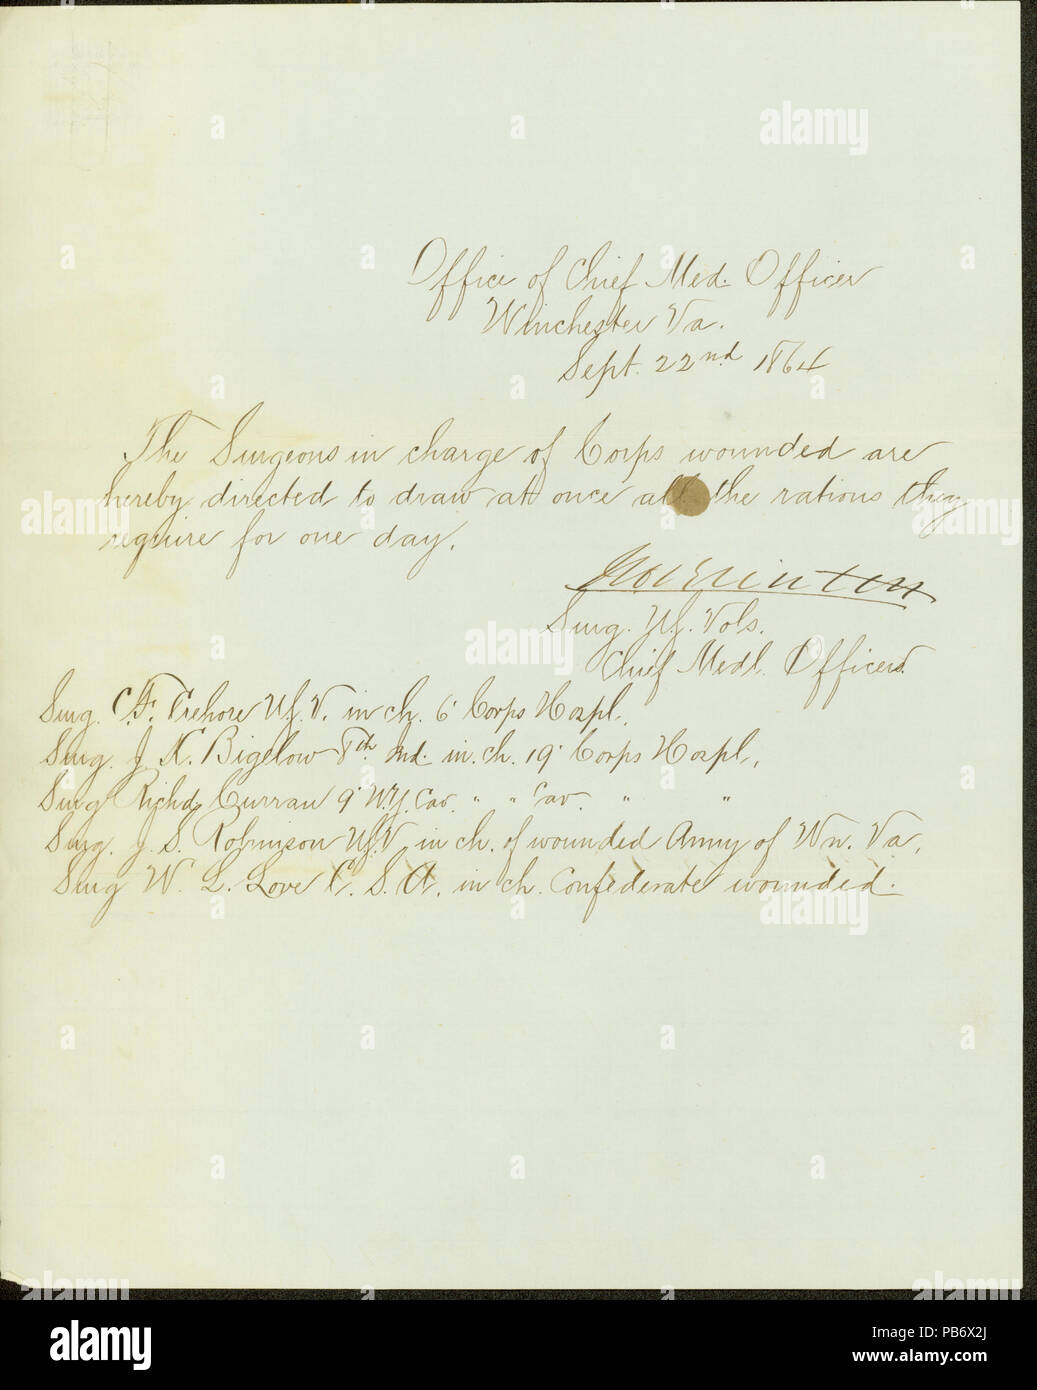 Office of Chief Med. Officer
Winchester Va.
Sept. 22nd 1864
The Surgeons in charge of Corps wounded are
hereby directed to draw at once all the rations they
require for one day.
Surg. U.S. Vols.
Chief Medl. Officer.
Surg. C. F. Crehore U.S.V. in ch. 6' Corps Hospl.
Surg. J. K. Bigelow 8th Ind. in ch. 19' Corps Hospl.,
Surg Richd Curran 9' N.Y. Cav. " " Cav. " "
Surg. J. S. Robinson U.S.V. in ch. of wounded Army of Wn. Va.
Surg W. L. Love C. S. A. in ch. Confederate wounded.
alamy
Image ID: PB6X2J
www.alamy.com